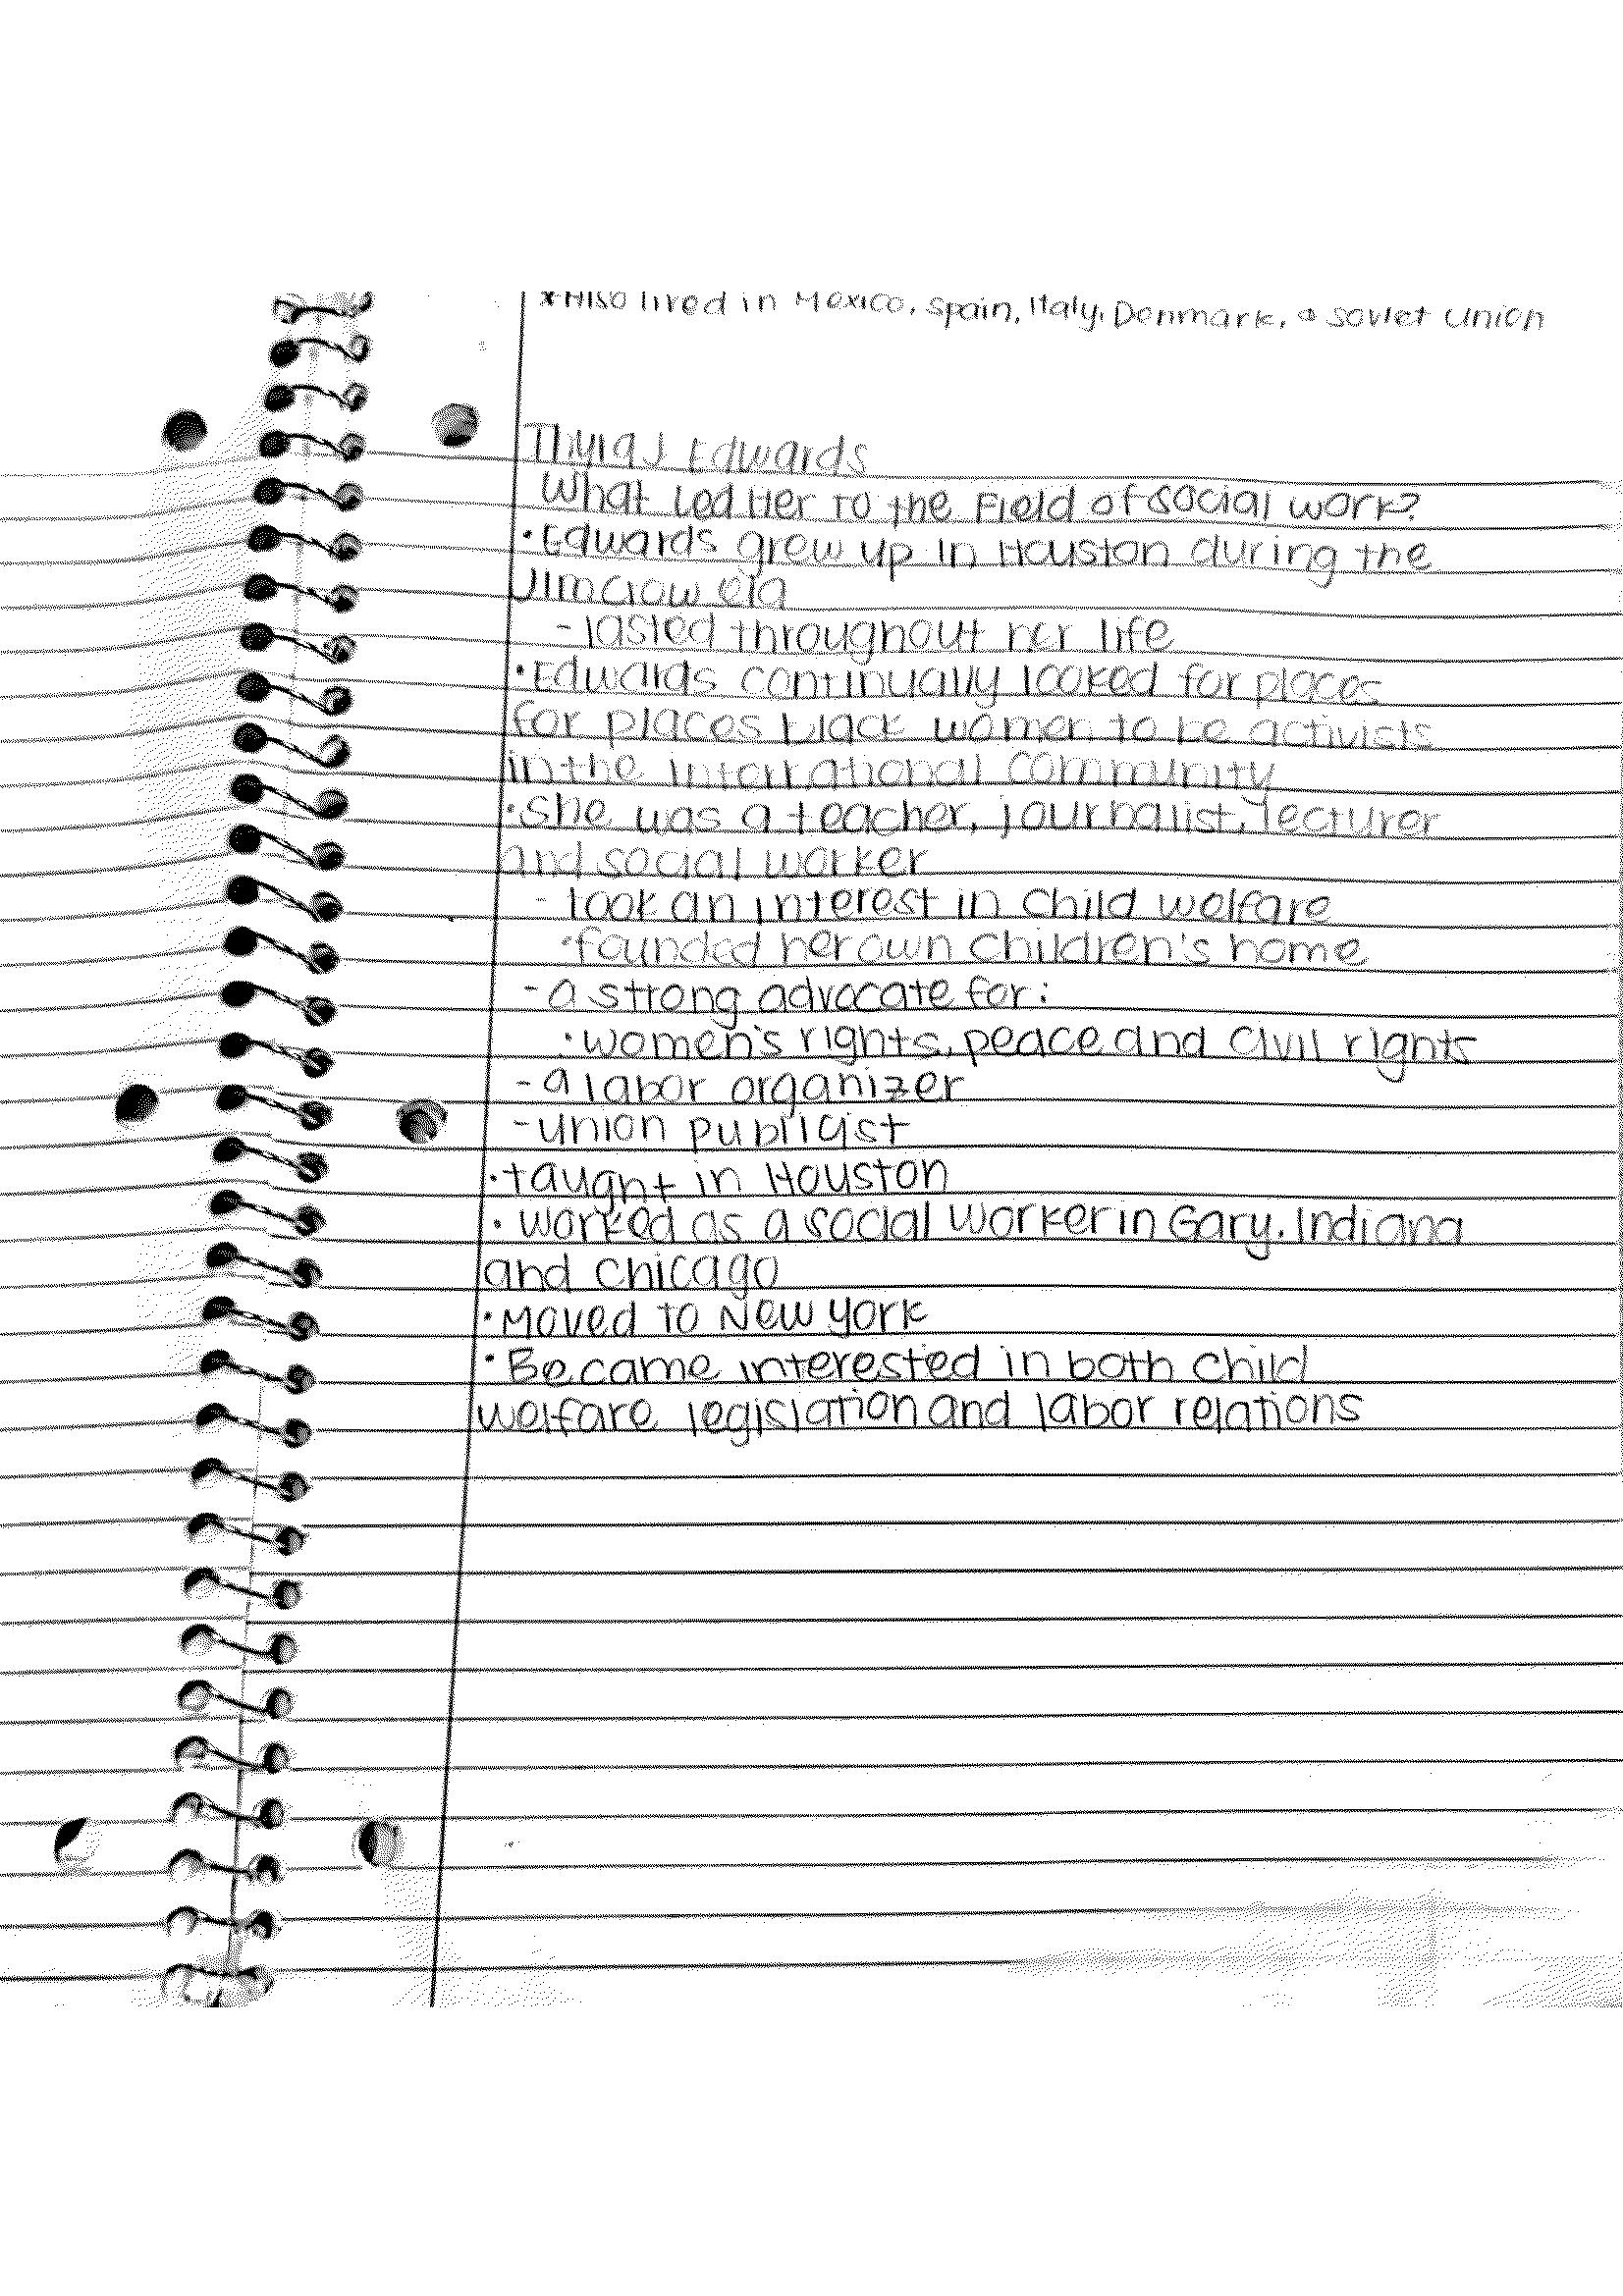 *Also lived in Mexico, Spain, Italy, Denmark, & Soviet Union
Thyra J Edwards
What Led Her to the Field of social work?
• Edwards grew up in Houston during the
Jim Crow era
- lasted throughout her life
• Edwards continually looked for places
for places black women to be activists
in the international community
• she was a teacher, journalist, lecturer
and social worker
- took an interest in child welfare
• founded her own children's home
- a strong advocate for:
• women's rights, peace and civil rights
- a labor organizer
- union publicist
• taught in Houston
• worked as a social worker in Gary, Indiana
and Chicago
• Moved to New York
• Became interested in both child
welfare legislation and labor relations